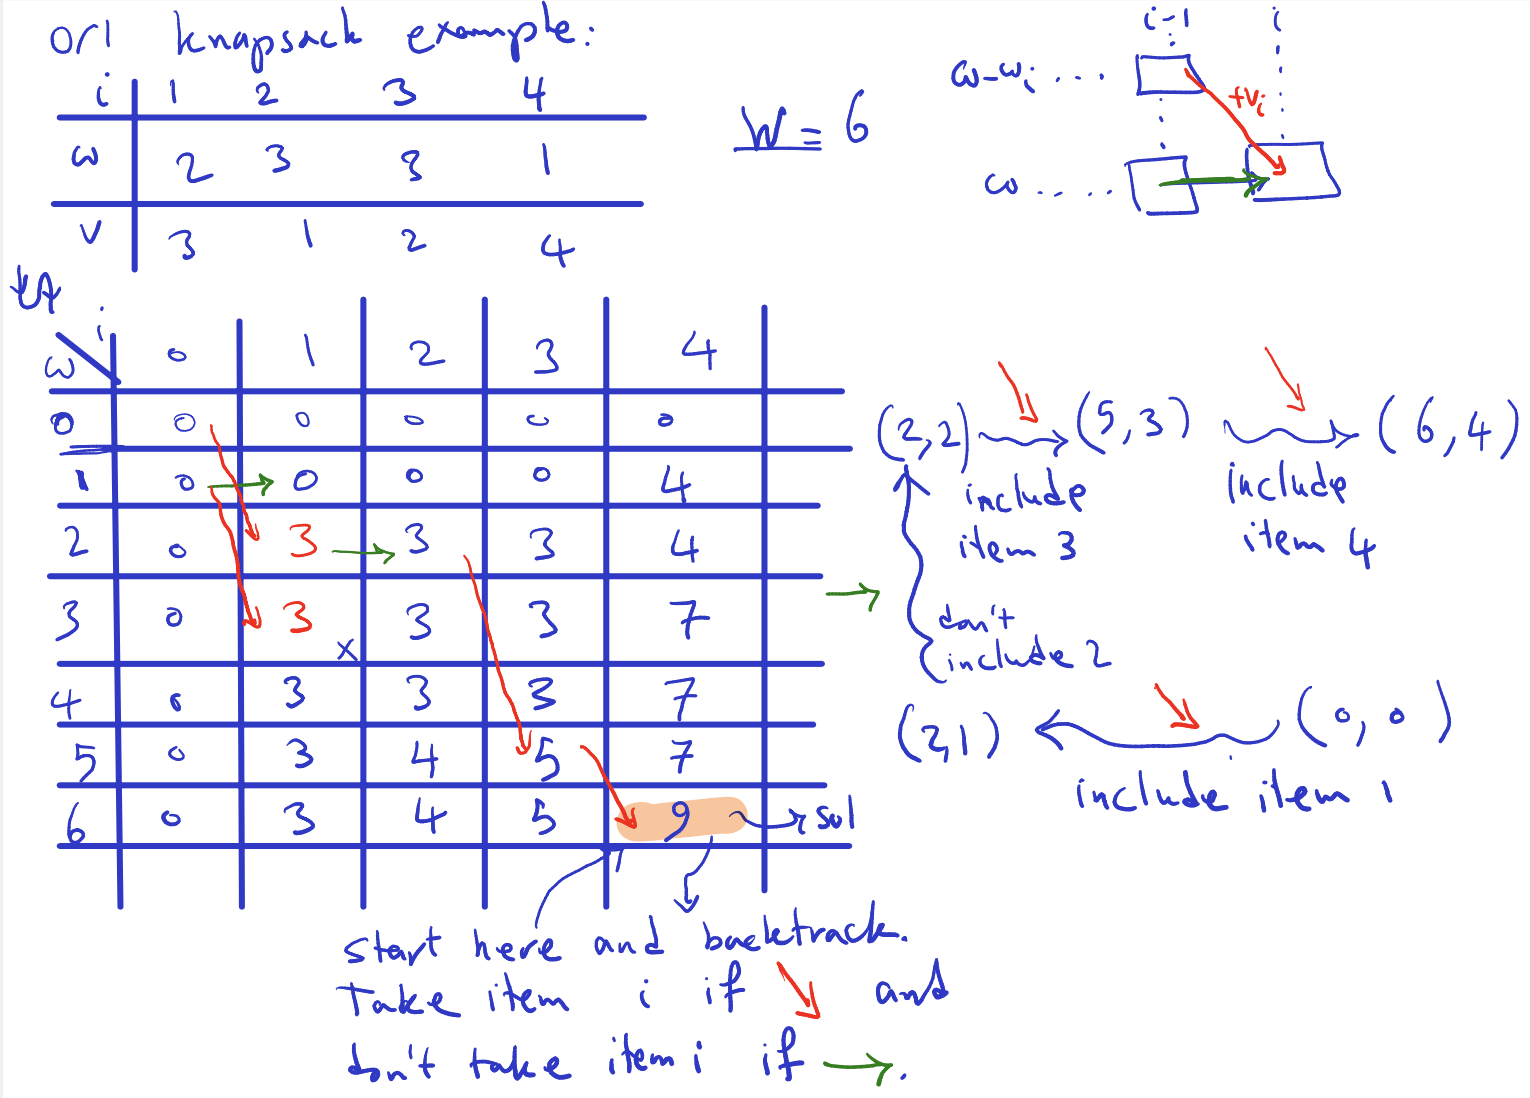 0r1 knapsack example:
i 1 2 3 4
w 2 3 3 1
v 3 1 2 4
W = 6
i-1 i
w-wi ....
+vi
w .....
A
i
w 0 1 2 3 4
0 0 0 0 0 0
1 0 0 0 0 4
2 0 3 3 3 4
3 0 3 3 3 7
x
4 0 3 3 3 7
5 0 3 4 5 7
6 0 3 4 5 9 → sol
(2,2) → (5,3) → (6,4)
include item 3
include item 4
don't
include 2
(2,1) ← (0,0)
include item 1
start here and backtrack.
Take item i if ↘ and
don't take item i if →.